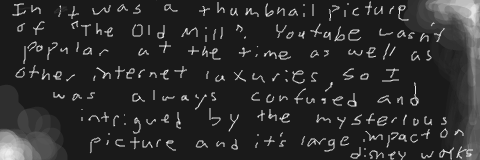 In it was a thumbnail picture
of "The Old Mill". Youtube wasn't
popular at the time as well as
other internet luxuries, so I
was always confused and
intrigued by the mysterious
picture and it's large impact on
disney works